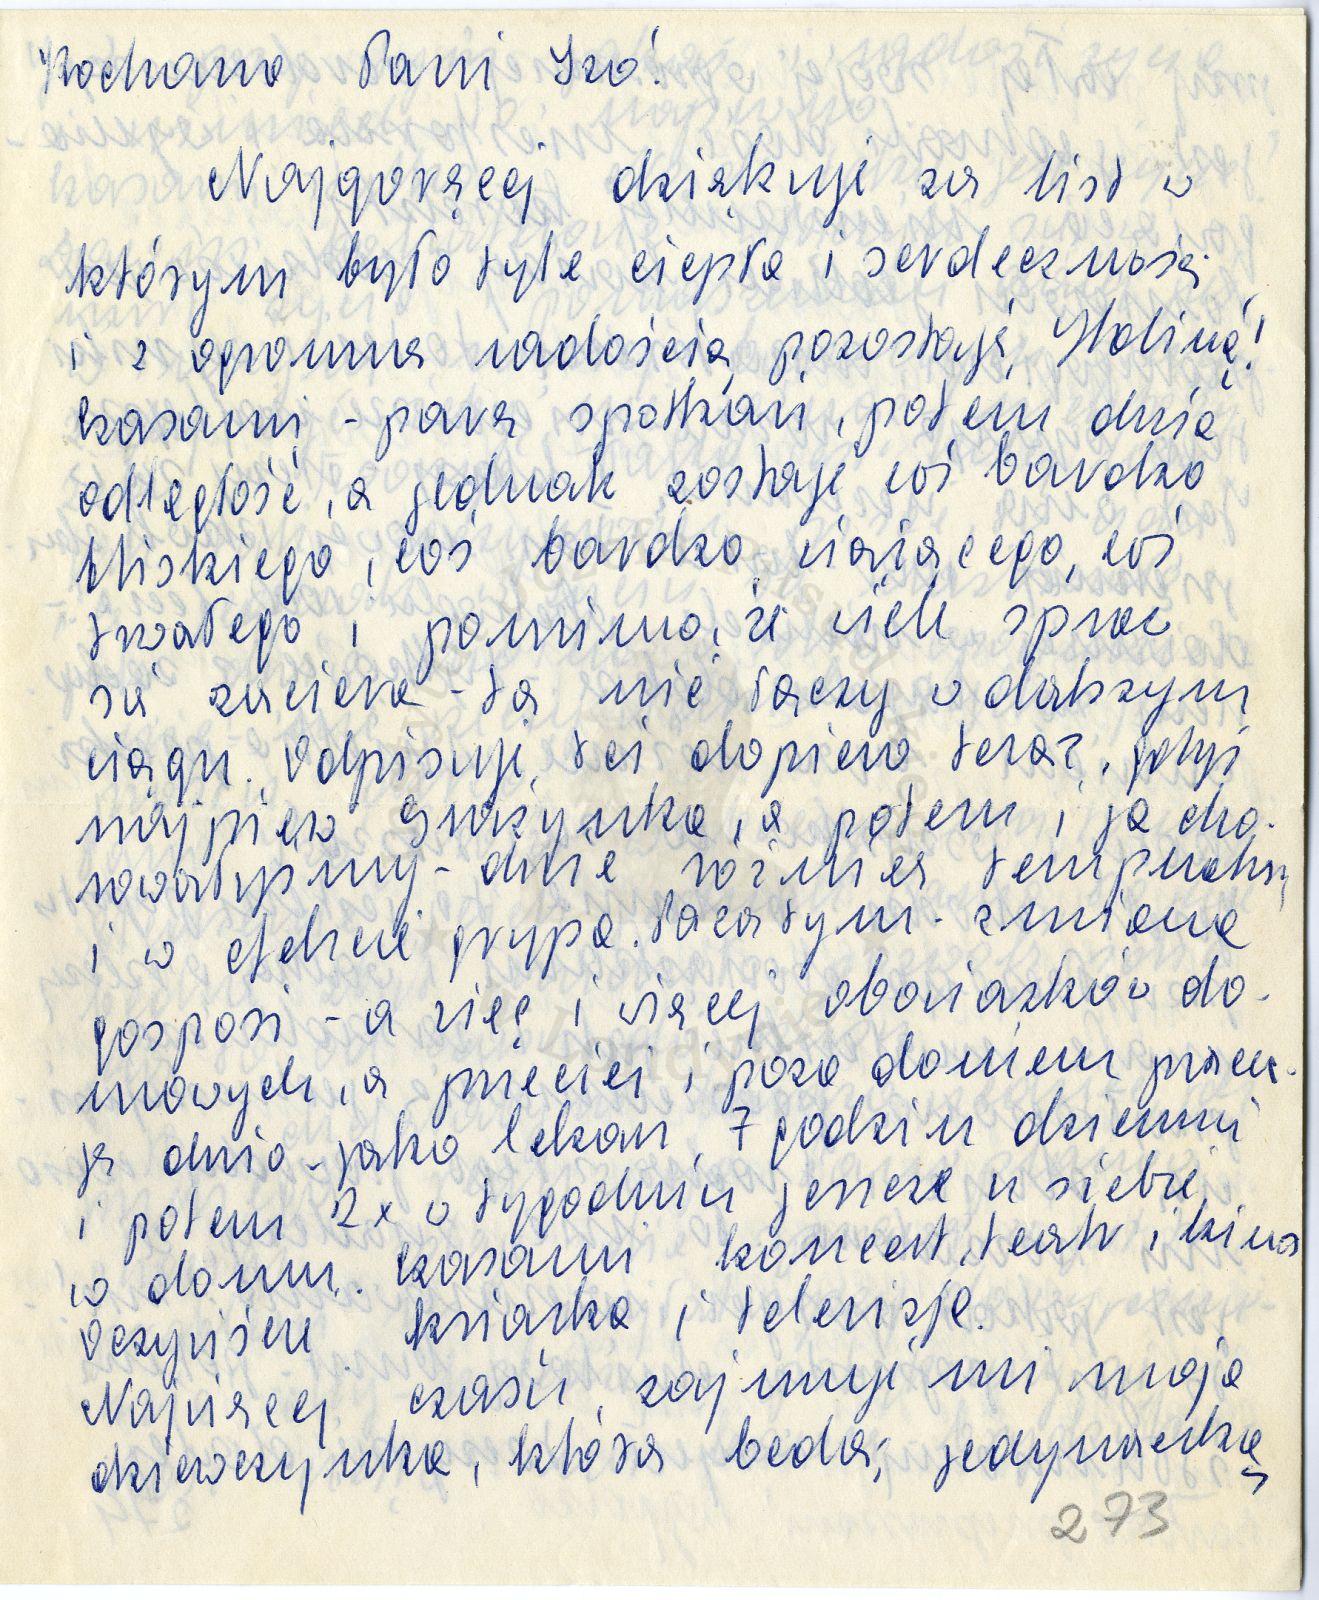 Kochana Pani Izo!
Najgoręcej dziękuję za list w
którym było tyle ciepła i serdeczności
i z ogromną radością pozostaję Haliną!
Czasami - parę spotkań, potem duża
odległość, a jednak zostaje coś bardzo
bliskiego, coś bardzo cieżącego, coś
trwałego i pomimo, że wiele spraw
się zaciera - ta nić łączy w dalszym
ciągu. Odpisuję Ci dopiero teraz, gdyż
najpierw Grażynka, a potem i ja cho-
rowałyśmy - duże różnice temperatury
i w efekcie grypa. Poza tym - zmiana
gosposi - a więc i więcej obowiązków do-
mowych, a przecież i poza domem pracu-
ję dużo - jako lekarz, 7 godzin dziennie
i potem 2x w tygodniu jeszcze u siebie
w domu. Czasami koncert, teatr i kino
Oczywiście książka i telewizja.
Najwięcej czasu zajmuje mi moja
dziewczynka, która będąc jedynaczką
273